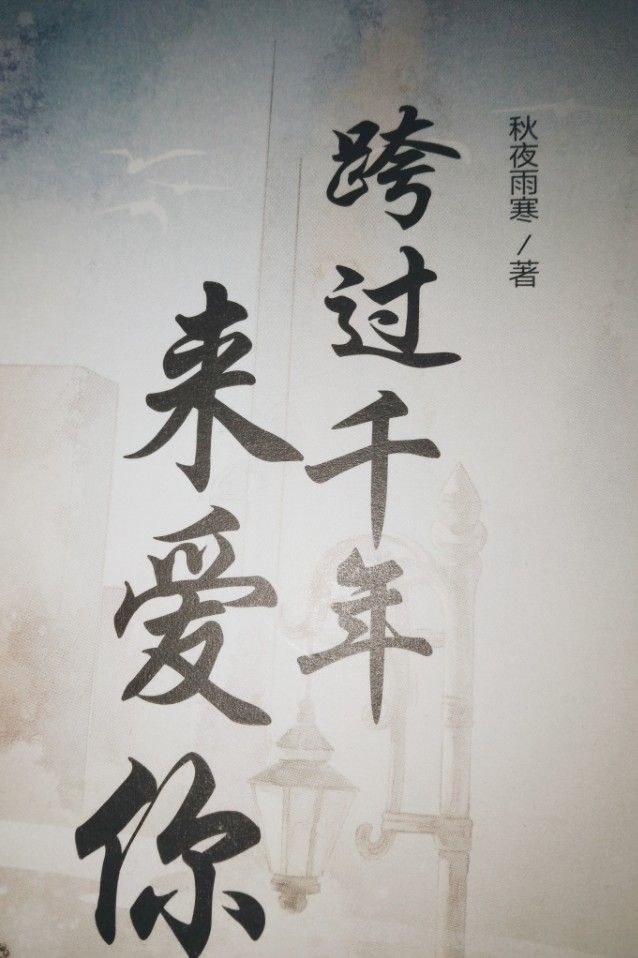 跨过千年
来爱你
秋夜雨寒/著